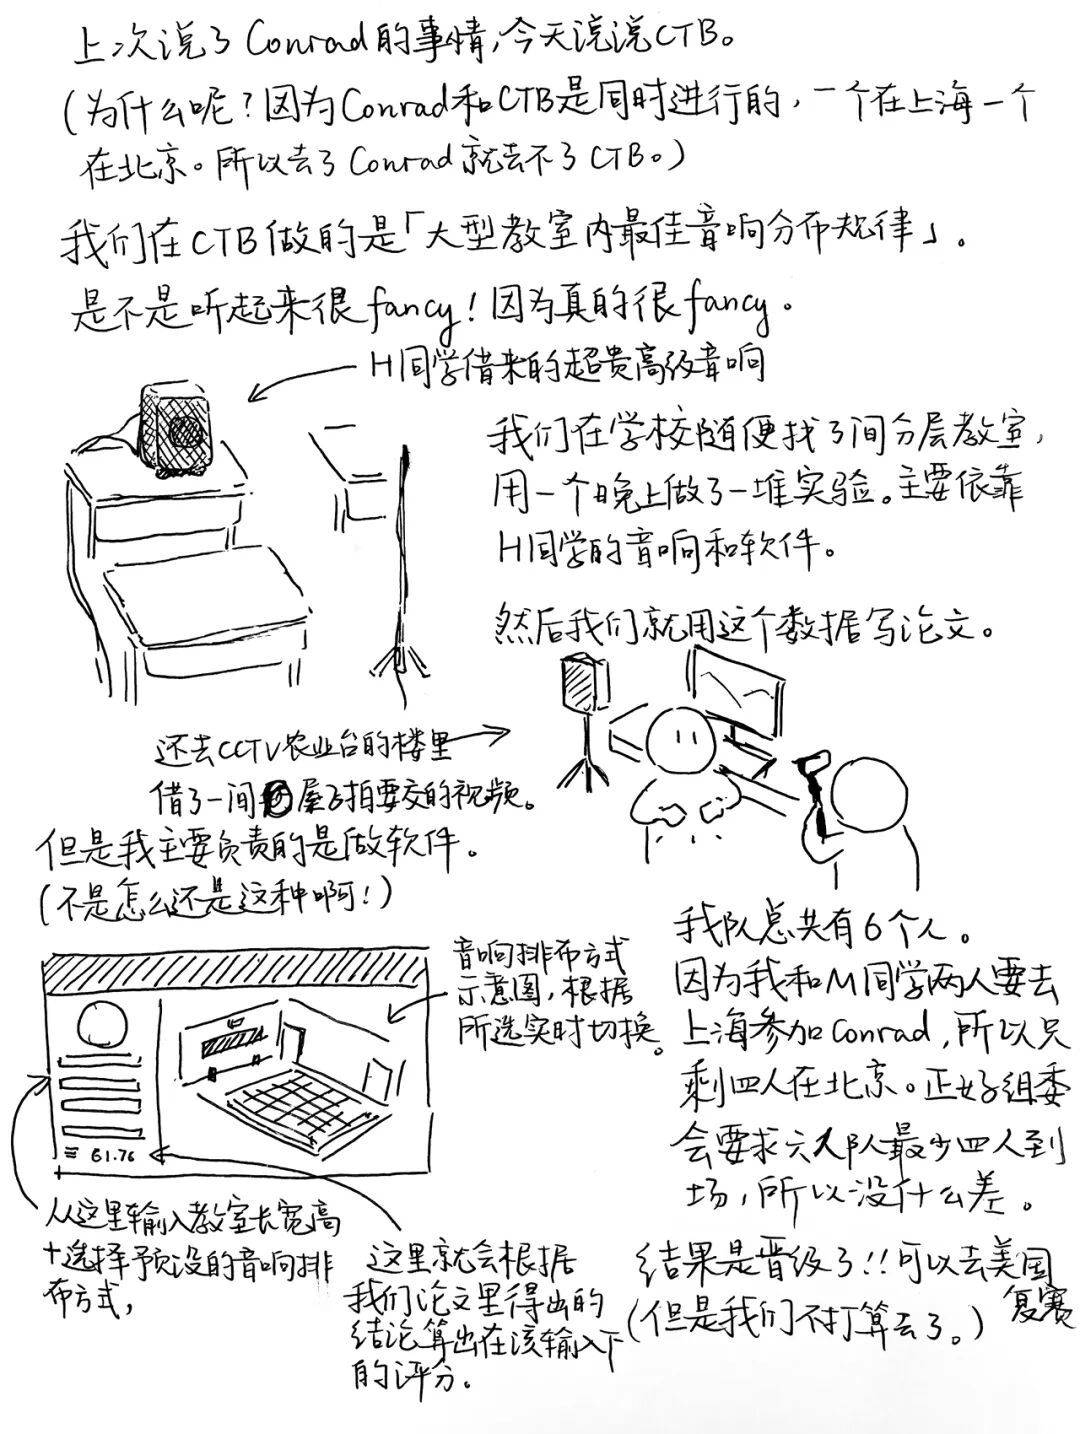 上次说了Conrad的事情,今天说说CTB。
(为什么呢?因为Conrad和CTB是同时进行的,一个在上海一个
在北京。所以去了Conrad就去不了CTB。)
我们在CTB做的是「大型教室内最佳音响分布规律」。
是不是听起来很fancy!因为真的很fancy。
H同学借来的超贵高级音响
我们在学校随便找了间分层教室,
用一个晚上做了一堆实验。主要依靠
H同学的音响和软件。
然后我们就用这个数据写论文。
还去CCTV农业台的楼里
借了一间屋子拍要交的视频。
但是我主要负责的是做软件。
(不是怎么还是这种啊!)
音响排布方式
示意图,根据
所选实时切换。
61.76
从这里输入教室长宽高
+选择预设的音响排
布方式,
这里就会根据
我们论文里得出的
结论算出在该输入下
的评分.
我队总共有6个人。
因为我和M同学两人要去
上海参加Conrad,所以只
剩四人在北京。正好组委
会要求六人队最少四人到
场,所以没什么差。
结果是晋级了!!可以去美国
复赛
(但是我们不打算去了。)